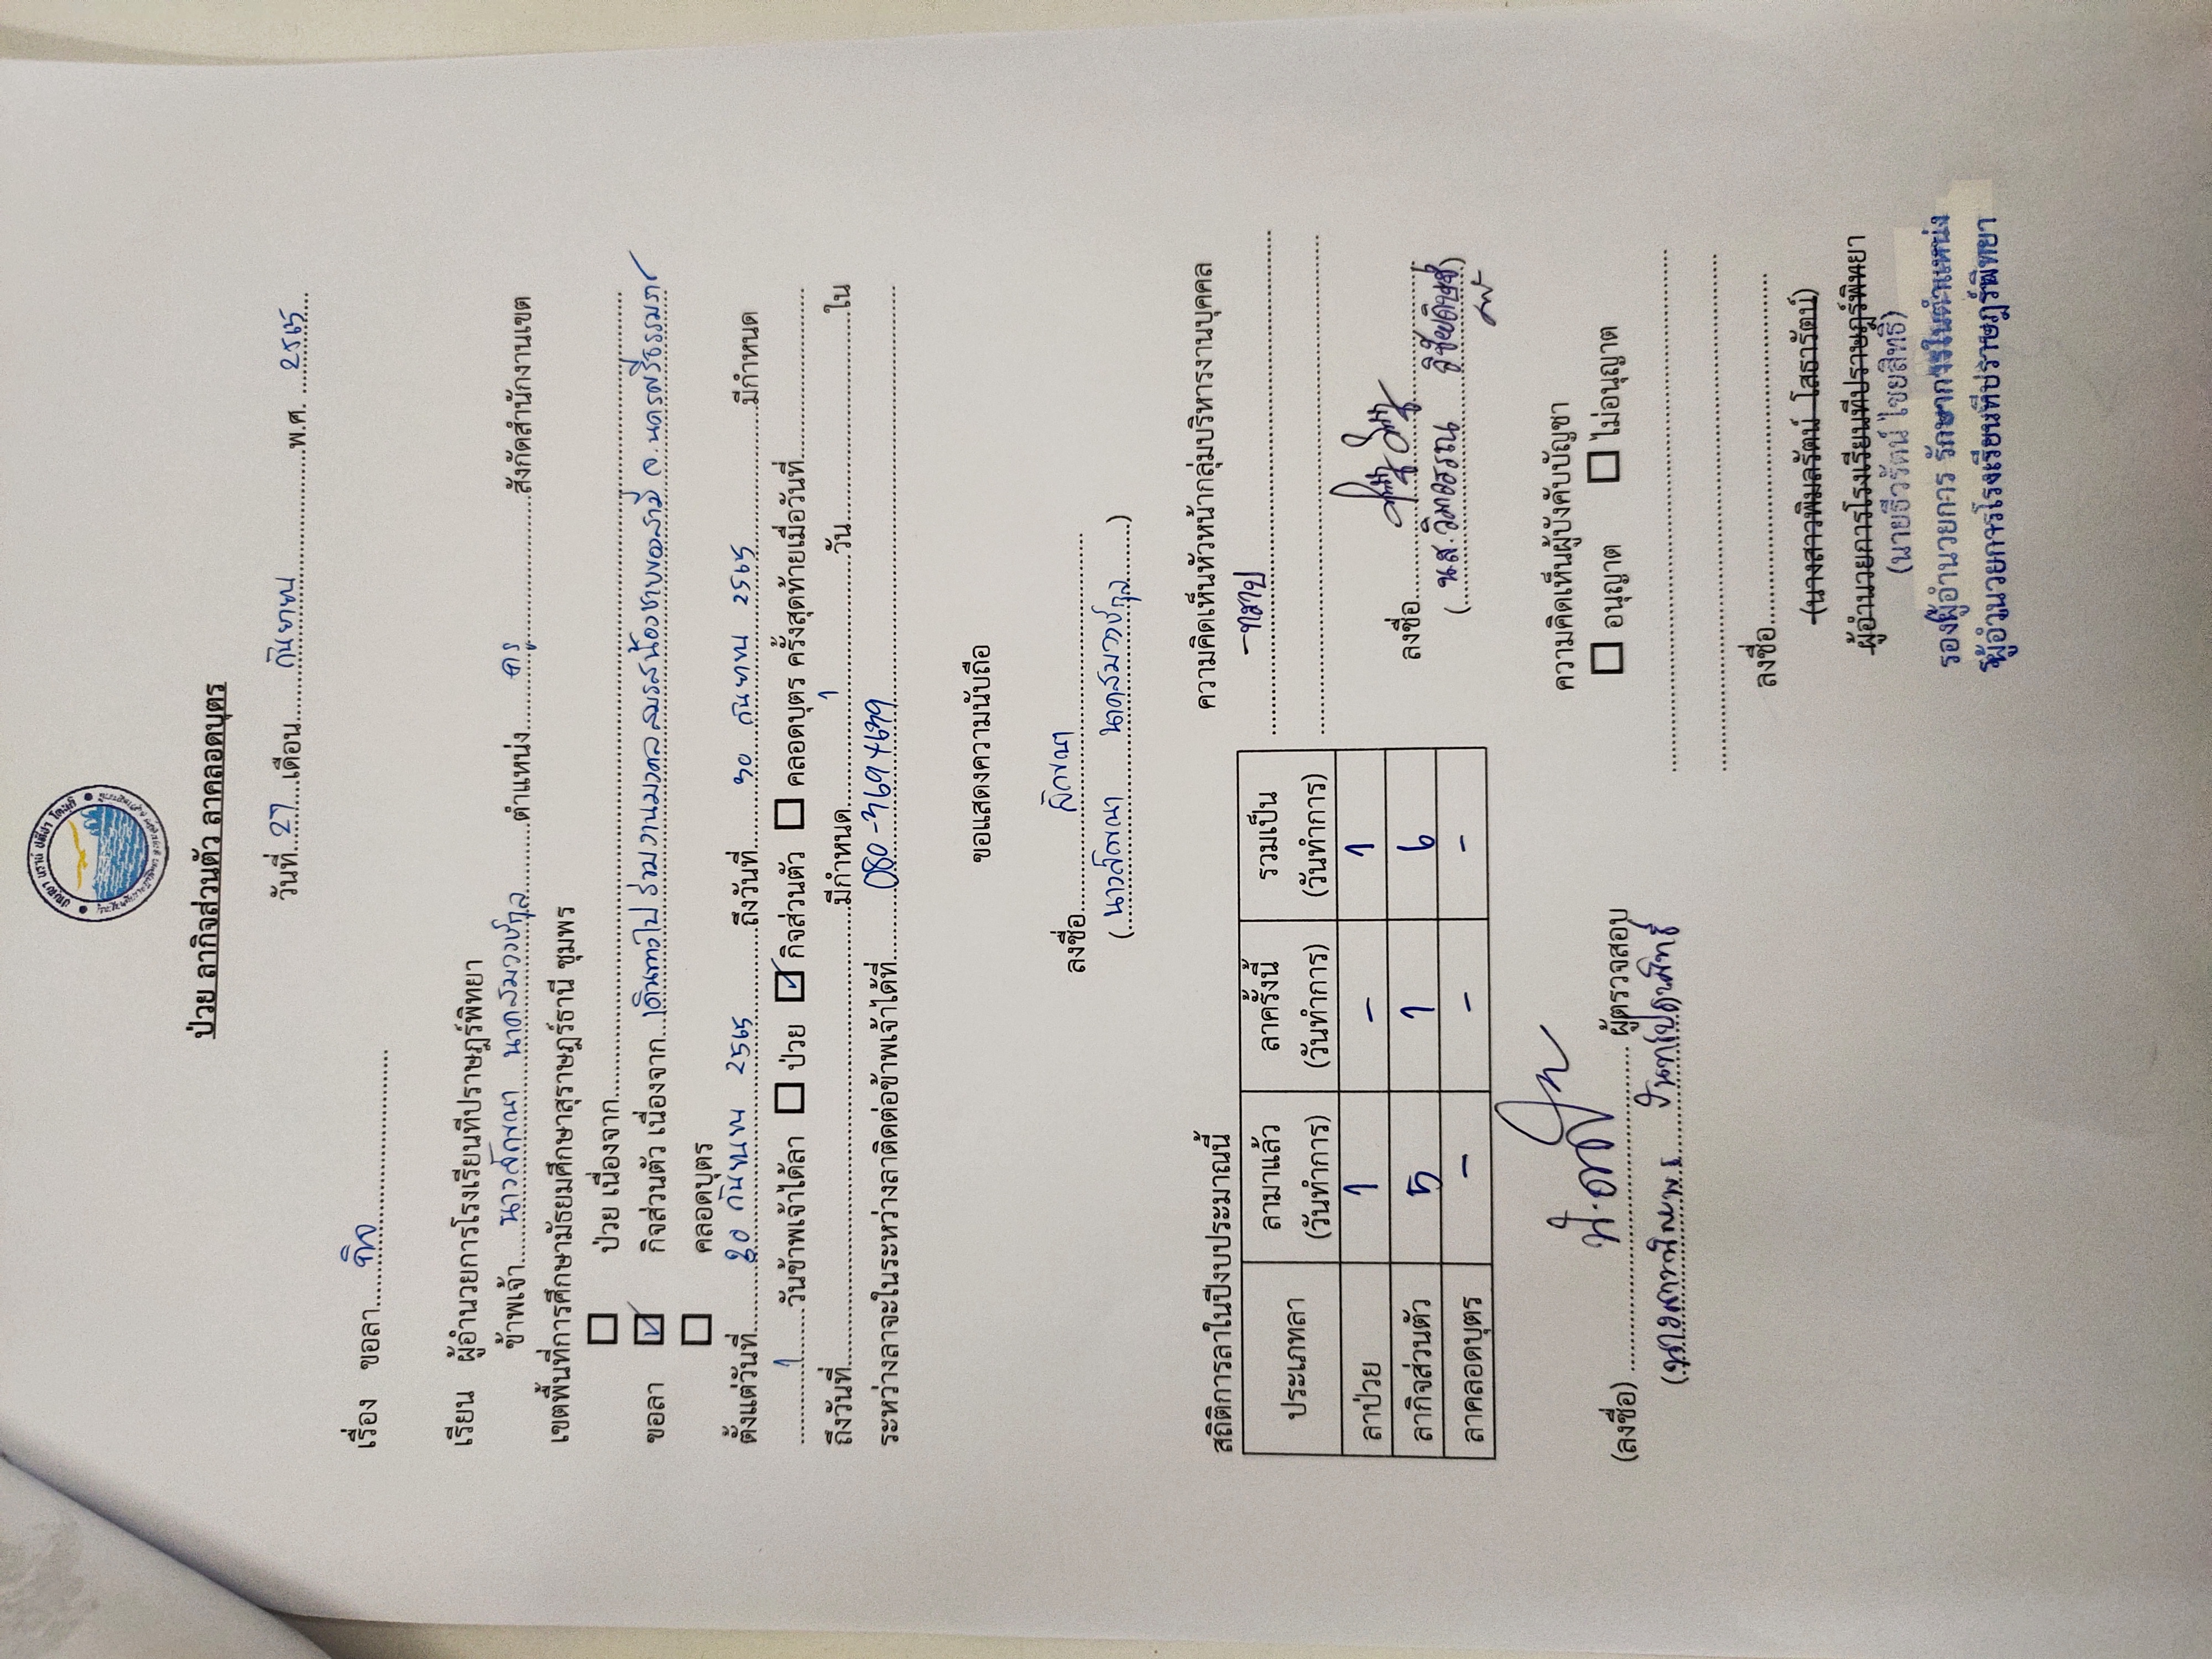 ป่วย ลากิจส่วนตัว ลาคลอดบุตร
วันที่...27...เดือน...กันยายน...พ.ศ. ...2565...
เรื่อง ขอลา...กิจ...
เรียน ผู้อำนวยการโรงเรียนทีปราษฎร์พิทยา
ข้าพเจ้า...นางสาวลักขณา นาคสมวงษ์กุล...ตำแหน่ง...ครู...สังกัดสำนักงานเขต
เขตพื้นที่การศึกษามัธยมศึกษาสุราษฎร์ธานี ชุมพร
☐ ป่วย เนื่องจาก...
ขอลา ☑ กิจส่วนตัว เนื่องจาก...เดินทางไปร่วมงานมงคลสมรสน้องชายของสามี จ.นครศรีธรรมราช
☐ คลอดบุตร
ตั้งแต่วันที่...30 กันยายน 2565...ถึงวันที่...30 กันยายน 2565...มีกำหนด
...1...วันข้าพเจ้าได้ลา ☐ ป่วย ☑ กิจส่วนตัว ☐ คลอดบุตร ครั้งสุดท้ายเมื่อวันที่...
ถึงวันที่...มีกำหนด...1...วัน...ใน
ระหว่างลาจะในระหว่างลาติดต่อข้าพเจ้าได้ที่...080-
ขอแสดงความนับถือ
ลงชื่อ...ลักขณา...
(...นางสาวลักขณา นาคสมวงษ์กุล...)
สถิติการลาในปีงบประมาณนี้
ประเภทลา ลามาแล้ว (วันทำการ) ลาครั้งนี้ (วันทำการ) รวมเป็น (วันทำการ)
ลาป่วย 1 - 1
ลากิจส่วนตัว 5 1 6
ลาคลอดบุตร - - -
(ลงชื่อ)...ผู้ตรวจสอบ
ความคิดเห็นหัวหน้ากลุ่มบริหารงานบุคคล
- ทราบ
ลงชื่อ...
(...น.ส.วิมลวรรณ
ความคิดเห็นผู้บังคับบัญชา
☐ อนุญาต ☐ ไม่อนุญาต
ลงชื่อ...
(นางสาวพิมลรัตน์ โสธารัตน์)
ผู้อำนวยการโรงเรียนทีปราษฎร์พิทยา
(นายธีวรัตน์ ไชยสิทธิ์)
รองผู้อำนวยการ รักษาการในตำแหน่ง
ผู้อำนวยการโรงเรียนทีปราษฎร์พิทยา